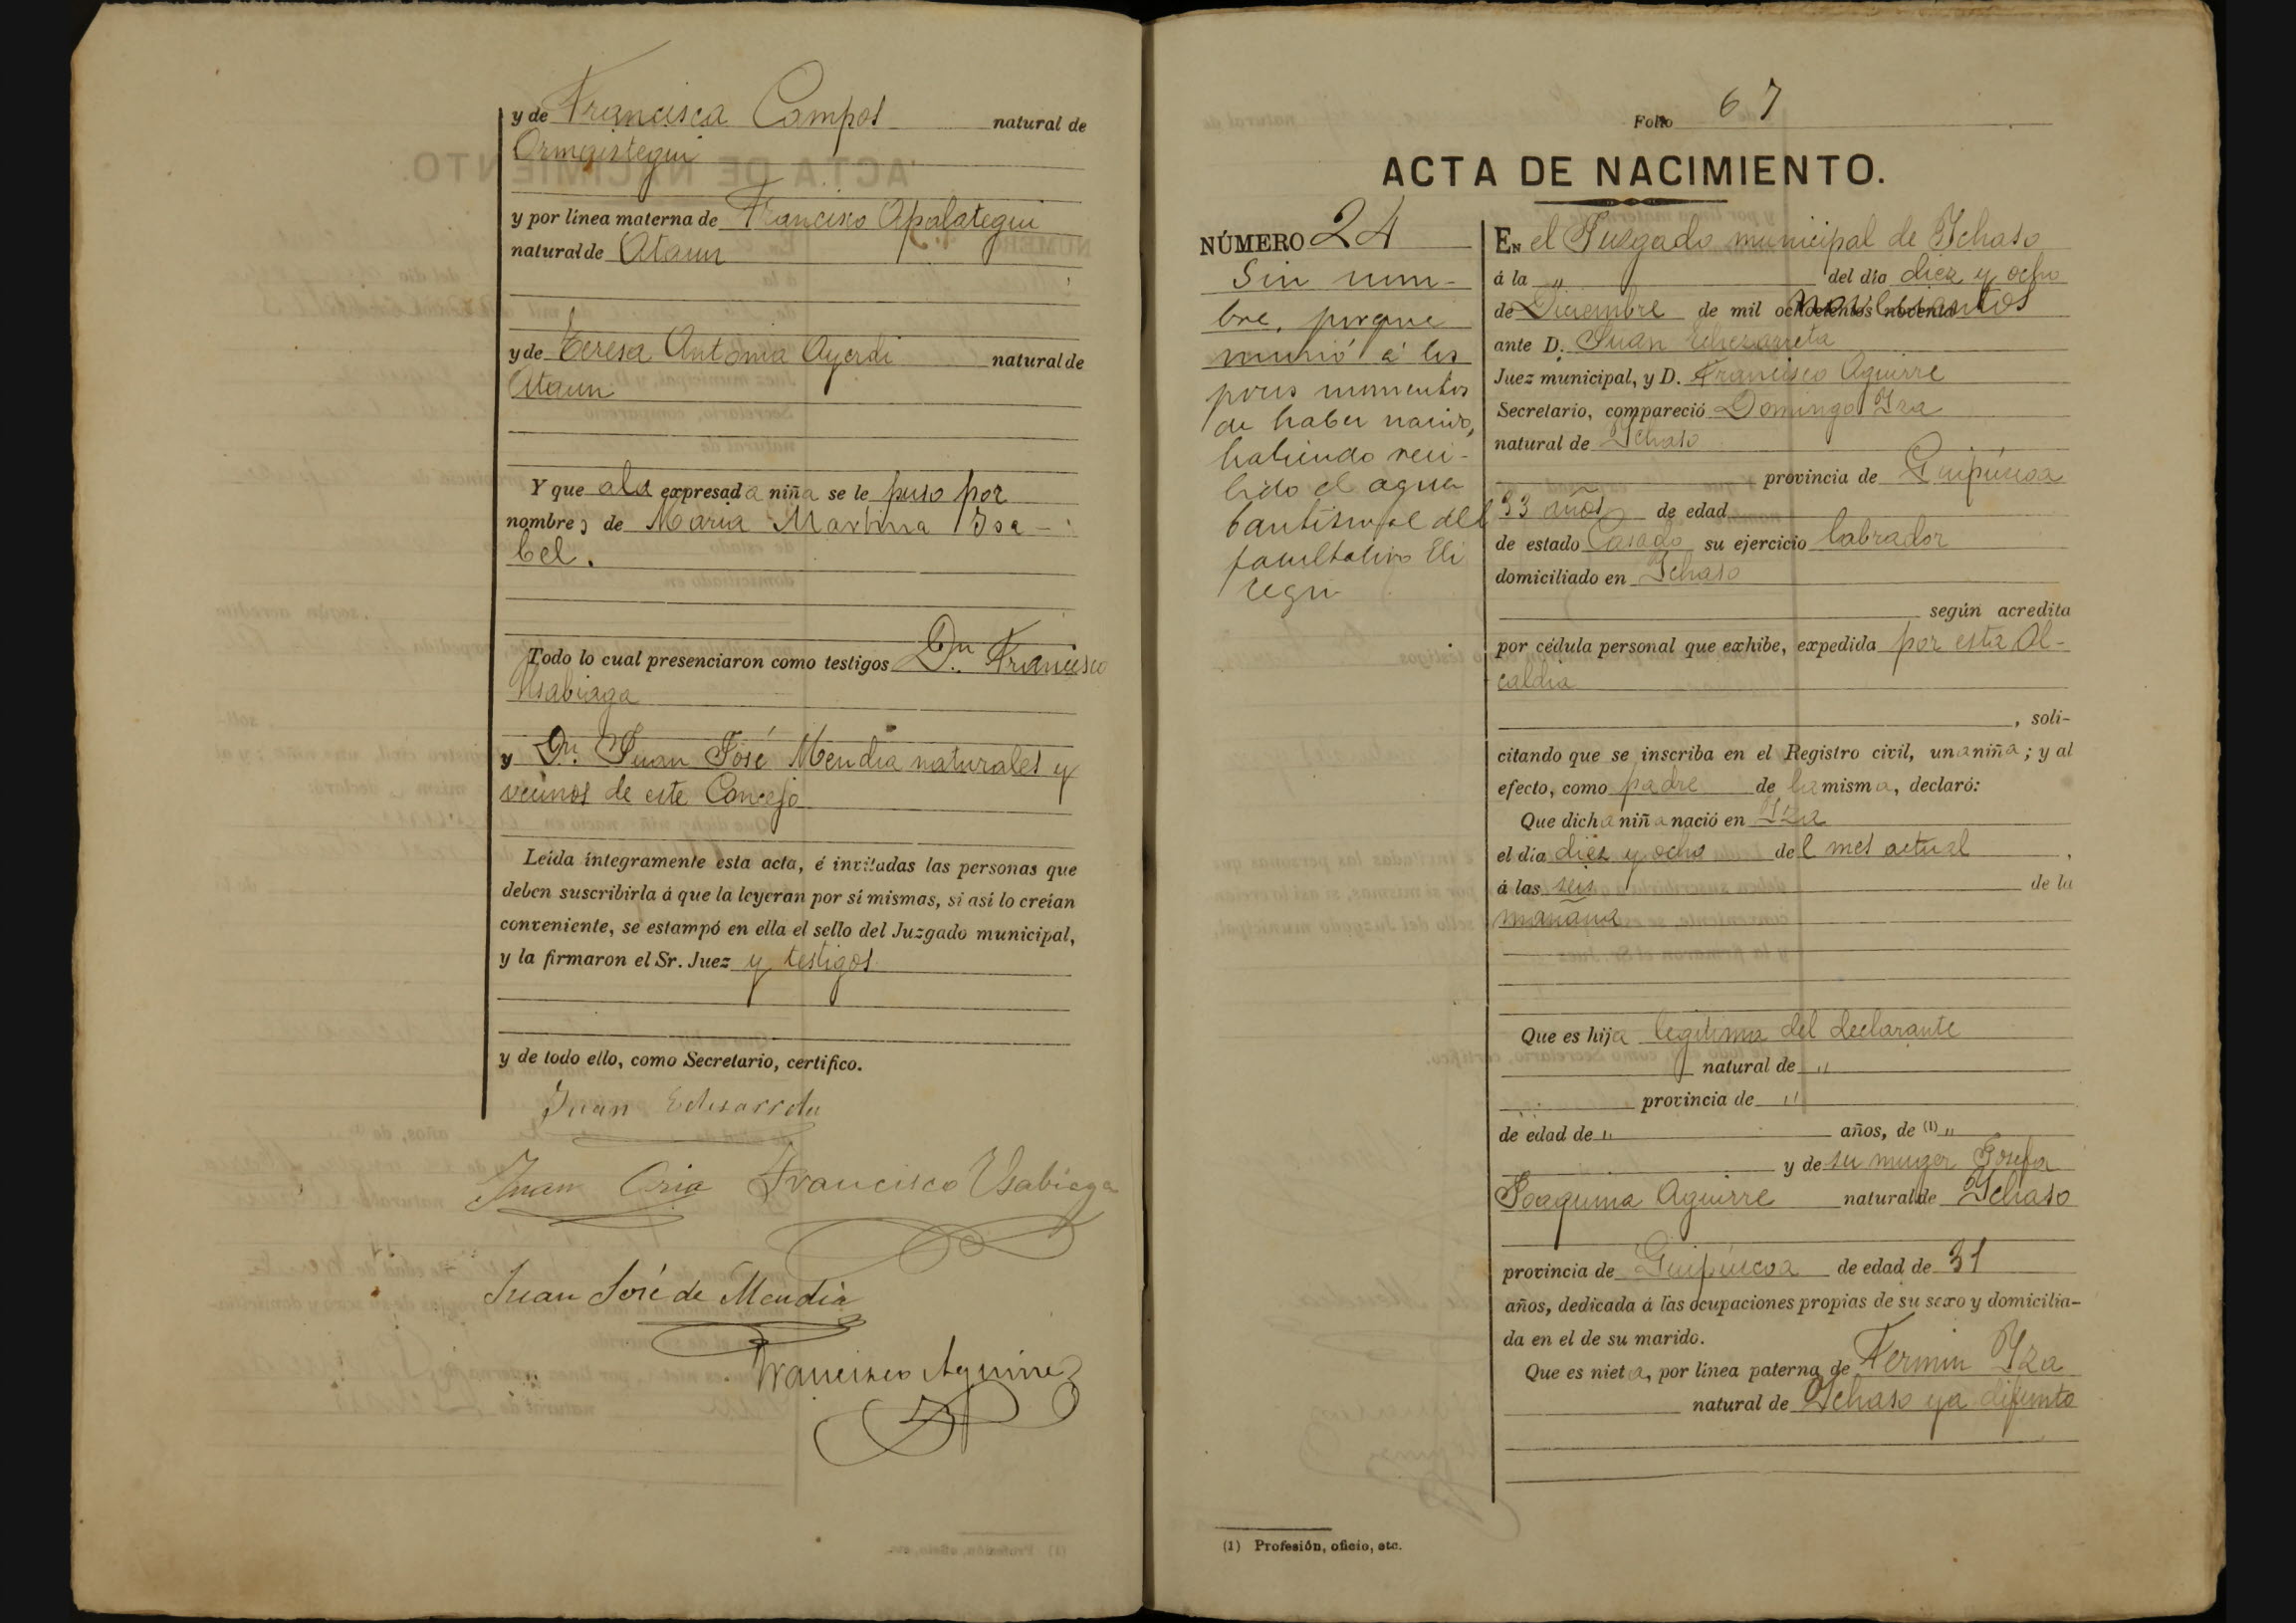 y de Francisca Campos natural de
Ormaiztegui
y por línea materna de Francisco Apalategui
natural de Ataun
y de Teresa Antonia Ayerdi natural de
Ataun
Y que a la expresada niña se le puso por
nombres de Maria Martina Isa-
bel.
Todo lo cual presenciaron como testigos Dn. Francisco
Usabiaga
y Dn. Juan José Mendia naturales y
vecinos de este Concejo
Leída íntegramente esta acta, é invitadas las personas que
deben suscribirla á que la leyeran por sí mismas, si así lo creían
conveniente, se estampó en ella el sello del Juzgado municipal,
y la firmaron el Sr. Juez y testigos
y de todo ello, como Secretario, certifico.
Juan
Juan Oria Francisco Usabiaga
Juan José de Mendia
Francisco Aguirre
Folio 67
ACTA DE NACIMIENTO.
NÚMERO 24
Sin nom-
bre, porque
murió á los
pocos momentos
de haber nacido,
habiendo reci-
bido el agua
bautismal del
facultativo Eli
cegui
EN el Juzgado municipal de Ychaso
á la " del día diez y ocho
de Diciembre de mil ochocientos noventa novecientos
ante D. Juan Echezarreta
Juez municipal, y D. Francisco Aguirre
Secretario, compareció Domingo Yza
natural de Ychaso
provincia de Guipúzcoa
33 años de edad
de estado Casado su ejercicio labrador
domiciliado en Ychaso
según acredita
por cédula personal que exhibe, expedida por esta Al-
caldia
, soli-
citando que se inscriba en el Registro civil, una niña; y al
efecto, como padre de la misma, declaró:
Que dicha niña nació en Yza
el día diez y ocho del mes actual ,
á las seis de la
mañana
Que es hija legitima del declarante
natural de "
provincia de "
de edad de " años, de (1) "
y de su muger Josefa
Joaquina Aguirre natural de Ychaso
provincia de Guipúzcoa de edad de 31
años, dedicada á las ocupaciones propias de su sexo y domicilia-
da en el de su marido.
Que es nieta, por línea paterna de Fermin Yza
natural de Ychaso ya difunto
(1) Profesión, oficio, etc.